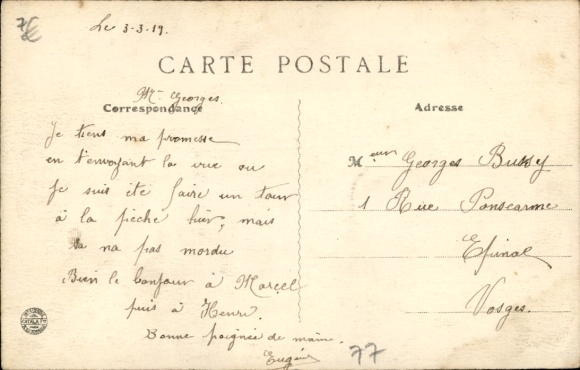 7€
Le 3-3-19.
CARTE POSTALE
Mr Georges.
Correspondance
Je tiens ma promesse
en t'envoyant la vue ou
Je suis été faire un tour
à la pèche hier, mais
sa na pas mordu
Bien le bonjour à Marcel
puis à Henri.
Bonne poignée de main.
Eugène
77
Adresse
Meur Georges Bussy
1 Rue Ponscarme
Epinal
Vosges.